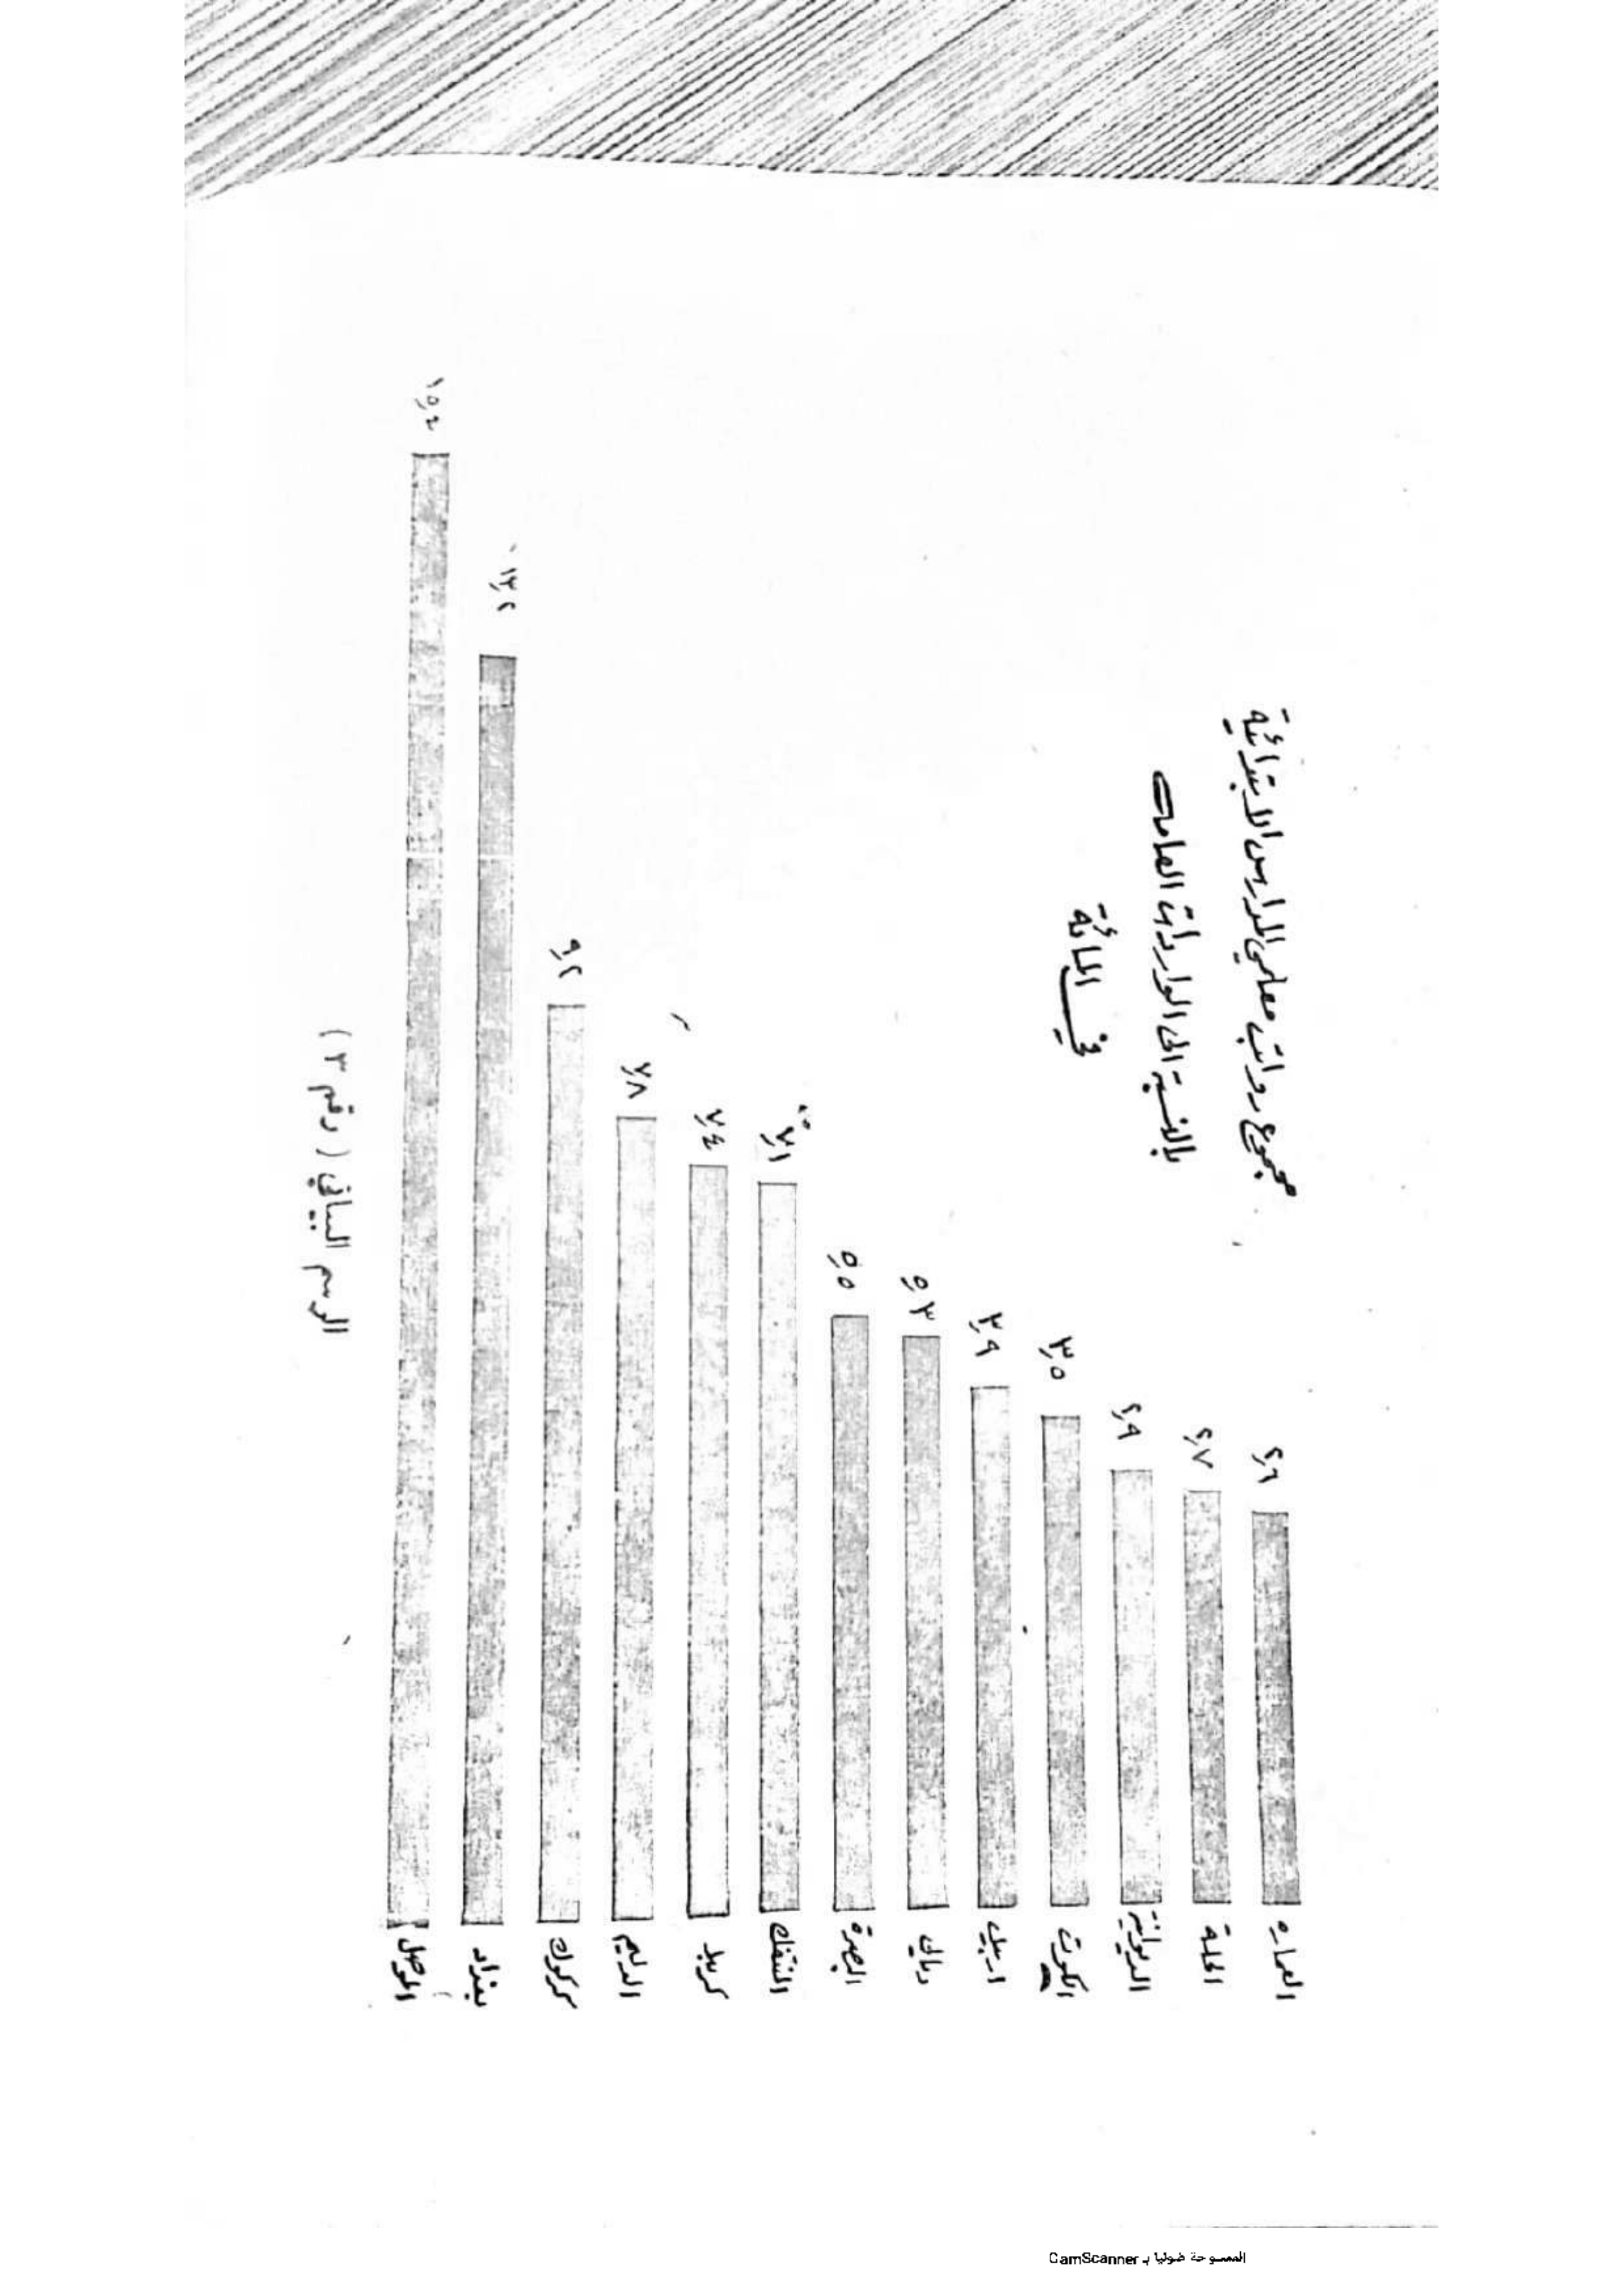 مجموع رواتب معلمي المدارس الابتدائية
بالنسبة الى الواردات العامة
في المائة
العماره ٢,٦
الحلة ٢,٧
الديوانية ٢,٩
الكوت ٣,٥
اربيل ٣,٩
ديالى ٥,٣
البصرة ٥,٥
المنتفك ٧,١
كربلا ٧,٤
الدليم ٧,٨
كركوك ٩,٢
بغداد ١٣,٢
الموصل ١٥,٤
الرسم البياني ( رقم ٣ )
الممسوحة ضوئيا بـ CamScanner